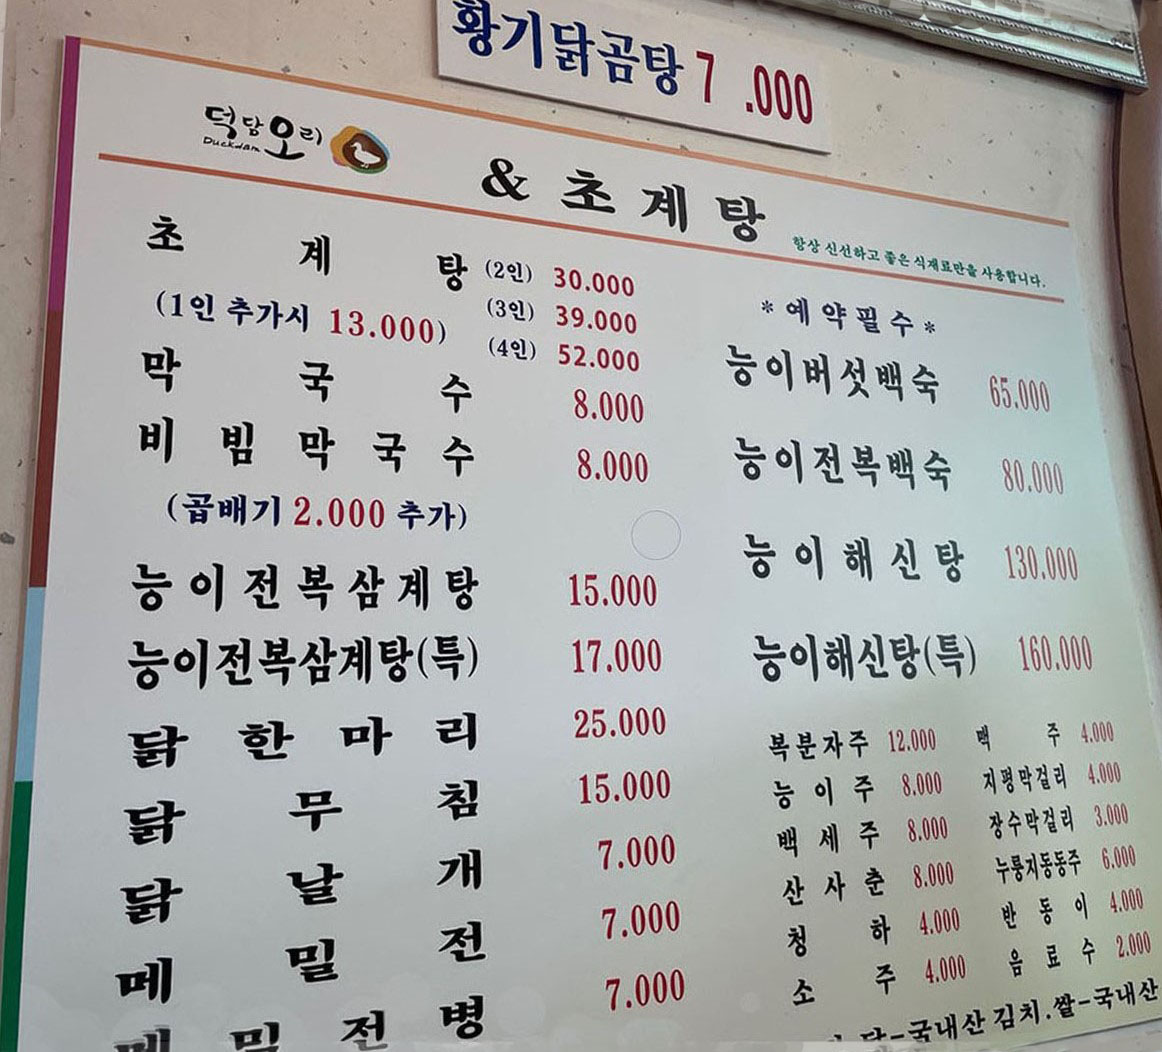 황기닭곰탕 7.000
덕담오리
Duckdam
& 초계탕
항상 신선하고 좋은 식재료만을 사용합니다.
초계탕 (2인) 30.000
(3인) 39.000
(1인 추가시 13.000)
(4인) 52.000
막국수 8.000
비빔막국수 8.000
(곱배기 2.000 추가)
능이전복삼계탕 15.000
능이전복삼계탕(특) 17.000
닭한마리 25.000
닭무침 15.000
닭날개 7.000
메밀전 7.000
메밀전병 7.000
*예약필수*
능이버섯백숙 65.000
능이전복백숙 80.000
능이해신탕 130.000
능이해신탕(특) 160.000
복분자주 12.000 맥주 4.000
능이주 8.000 지평막걸리 4.000
백세주 8.000 장수막걸리 3.000
산사춘 8.000 누룽지동동주 6.000
청하 4.000 반동이 4.000
소주 4.000 음료수 2.000
닭-국내산 김치.쌀-국내산